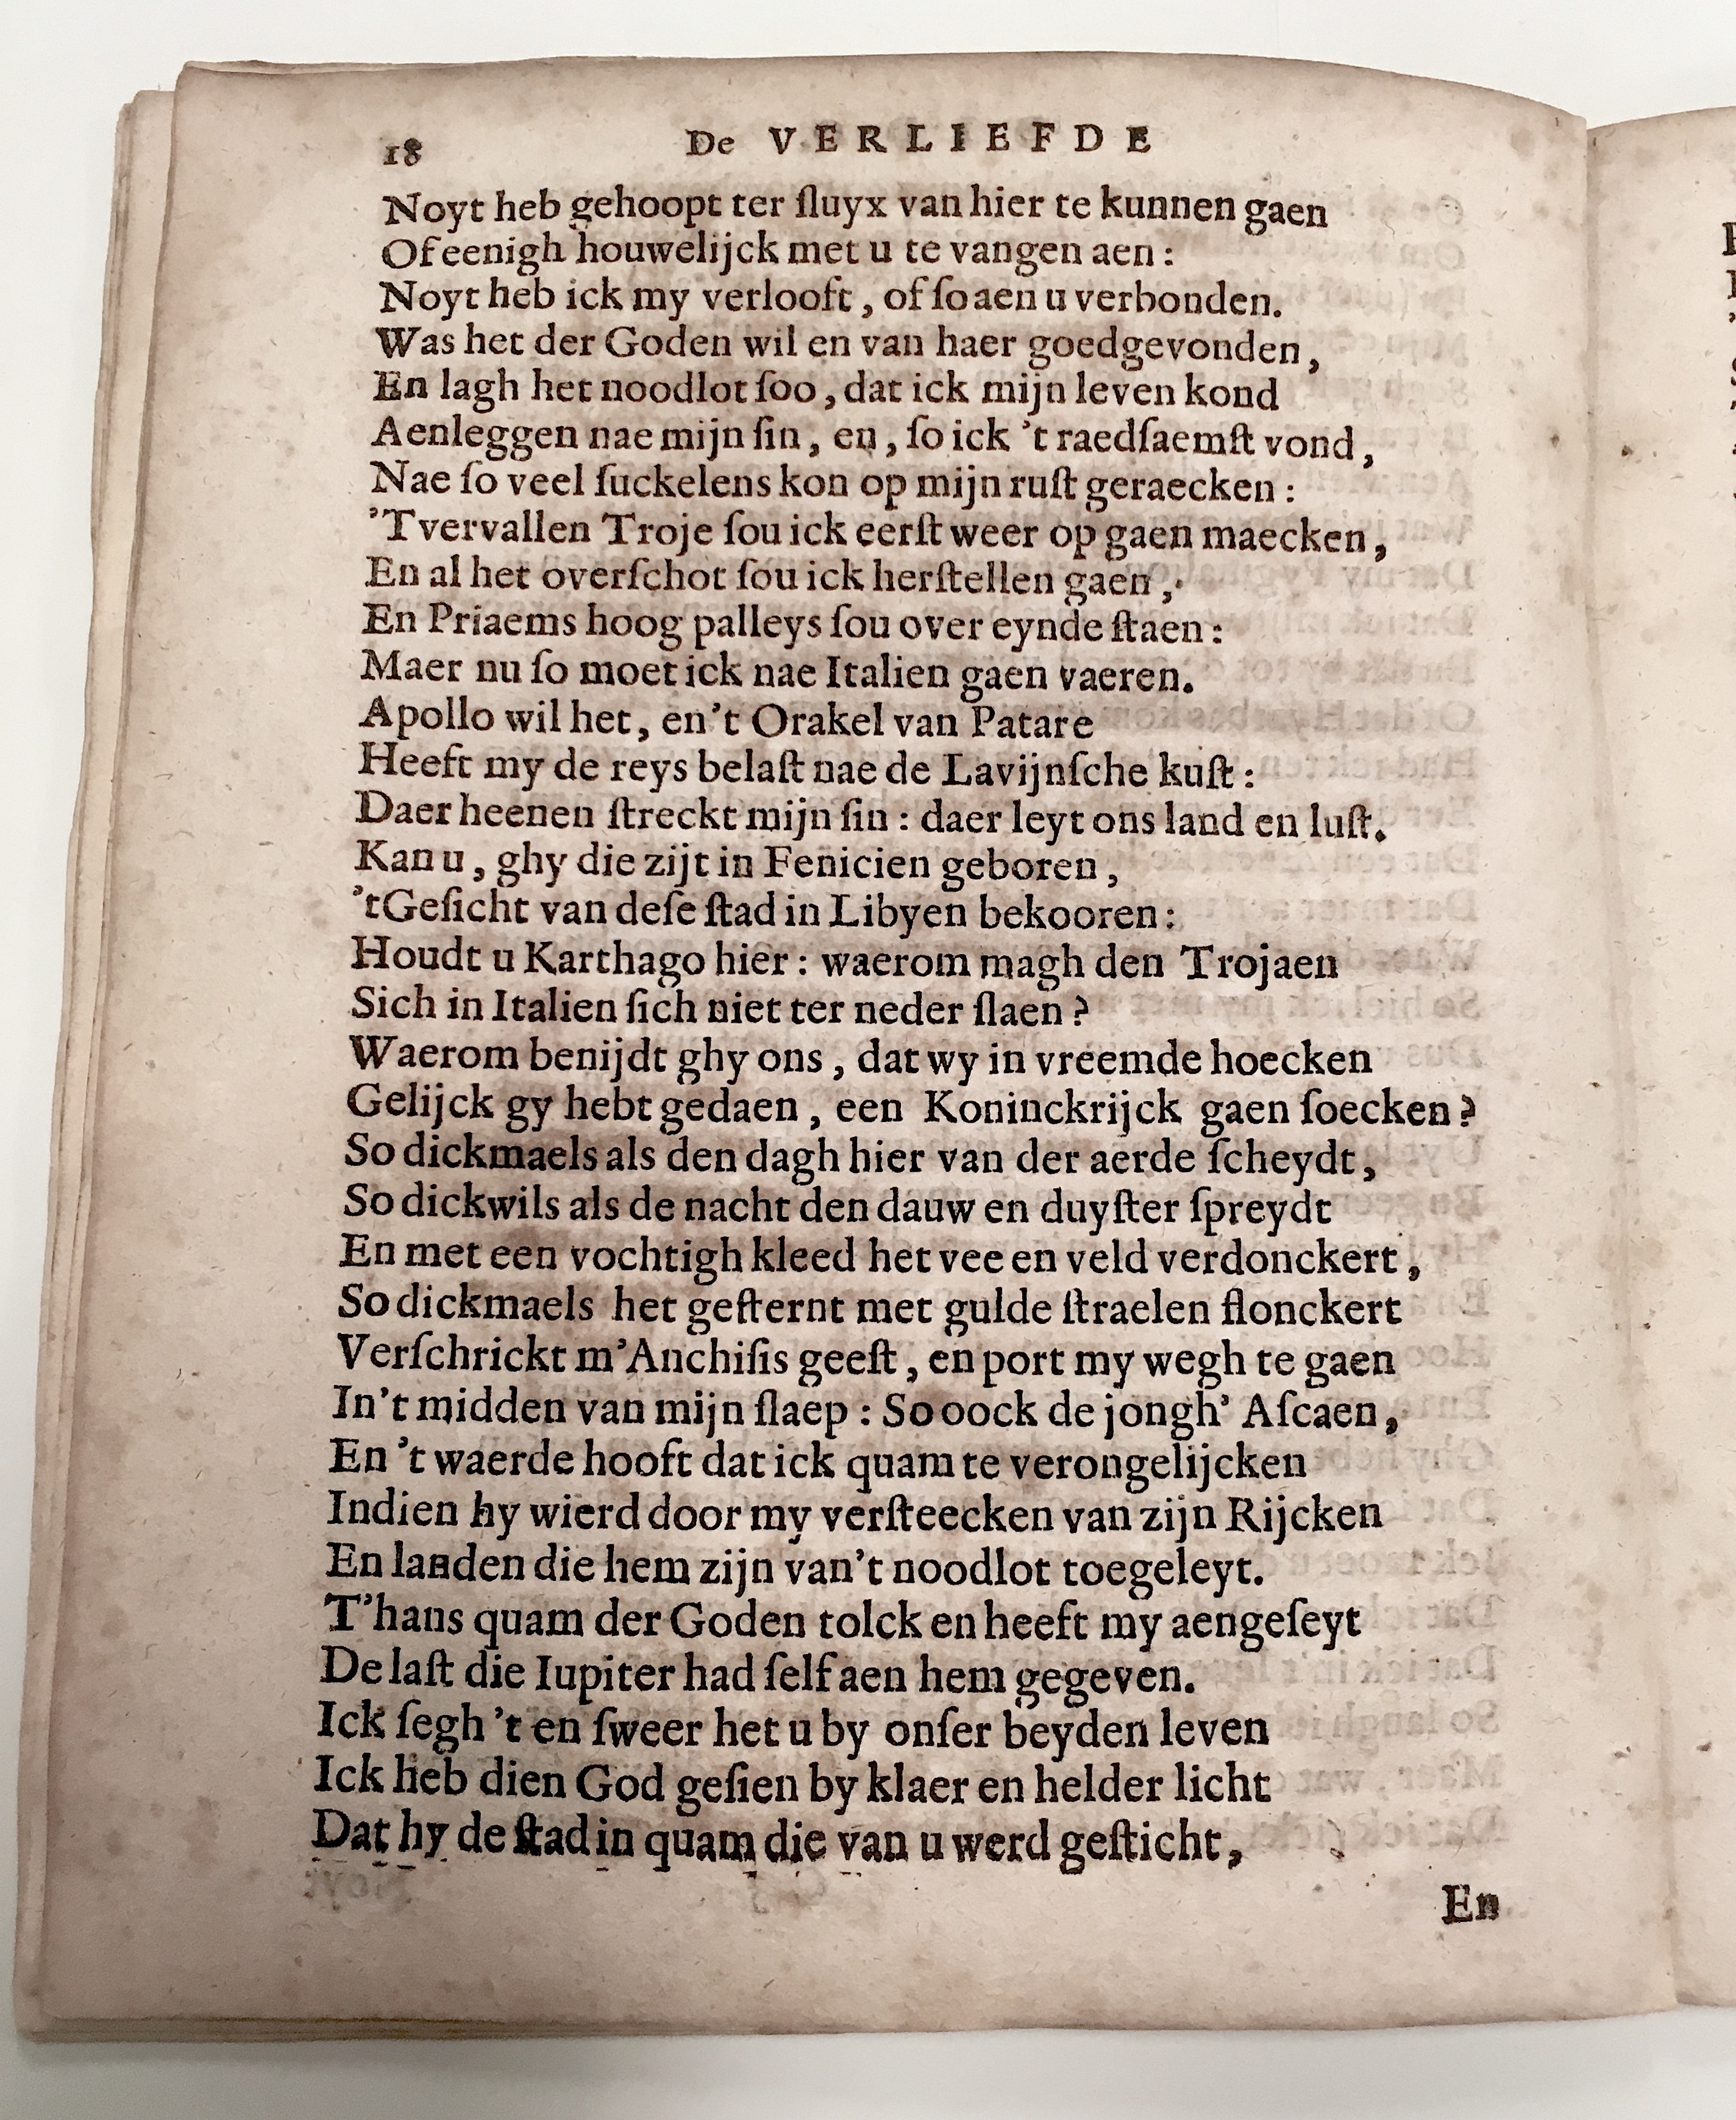 18 De VERLIEFDE
Noyt heb gehoopt ter ſluyx van hier te kunnen gaen
Of eenigh houwelijck met u te vangen aen:
Noyt heb ick my verlooft, of ſo aen u verbonden.
Was het der Goden wil en van haer goedgevonden,
En lagh het noodlot ſoo, dat ick mijn leven kond
Aenleggen nae mijn ſin, en, ſo ick 't raedſaemſt vond,
Nae ſo veel ſuckelens kon op mijn ruſt geraecken:
'T vervallen Troje ſou ick eerſt weer op gaen maecken,
En al het overſchot ſou ick herſtellen gaen,
En Priaems hoog palleys ſou over eynde ſtaen:
Maer nu ſo moet ick nae Italien gaen vaeren.
Apollo wil het, en't Orakel van Patare
Heeft my de reys belaſt nae de Lavijnſche kuſt:
Daer heenen ſtreckt mijn ſin: daer leyt ons land en luſt.
Kan u, ghy die zijt in Fenicien geboren,
't Geſicht van deſe ſtad in Libyen bekooren:
Houdt u Karthago hier: waerom magh den Trojaen
Sich in Italien ſich niet ter neder ſlaen?
Waerom benijdt ghy ons, dat wy in vreemde hoecken
Gelijck gy hebt gedaen, een Koninckrijck gaen ſoecken?
So dickmaels als den dagh hier van der aerde ſcheydt,
So dickwils als de nacht den dauw en duyſter ſpreydt
En met een vochtigh kleed het vee en veld verdonckert,
So dickmaels het geſternt met gulde ſtraelen flonckert
Verſchrickt m'Anchiſis geeſt, en port my wegh te gaen
In't midden van mijn ſlaep: So oock de jongh' Aſcaen,
En 't waerde hooft dat ick quam te verongelijcken
Indien hy wierd door my verſteecken van zijn Rijcken
En landen die hem zijn van't noodlot toegeleyt.
T'hans quam der Goden tolck en heeft my aengeſeyt
De laſt die Iupiter had ſelf aen hem gegeven.
Ick ſegh 't en ſweer het u by onſer beyden leven
Ick heb dien God geſien by klaer en helder licht
Dat hy de ſtad in quam die van u werd geſticht,
En